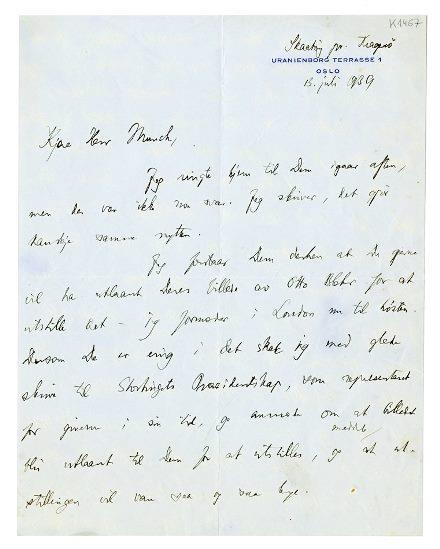 K1467
Skaatøy pr. Kragerø
URANIENBORG TERRASSE 1
OSLO
13. juli 1939
Kjære Herr Munch,
Jeg ringte hjem til Dem igaar aften,
men der var ikke noe svar. Jeg skriver, det gjør
kanskje samme nytten.
Jeg forstaar Dem derhen at De gjerne
vil ha utlaant Deres billede av Otto Blehr for at
utstille det – jeg formoder i London nu til høsten.
Dersom De er enig i det skal jeg med glede
skrive til Stortingets Presidentskap, som representant
for giverne i sin tid, og anmode om at billedet
blir utlaant til Dem for at utstilles, og at ut-
stillingen vil vare saa og saa lenge.